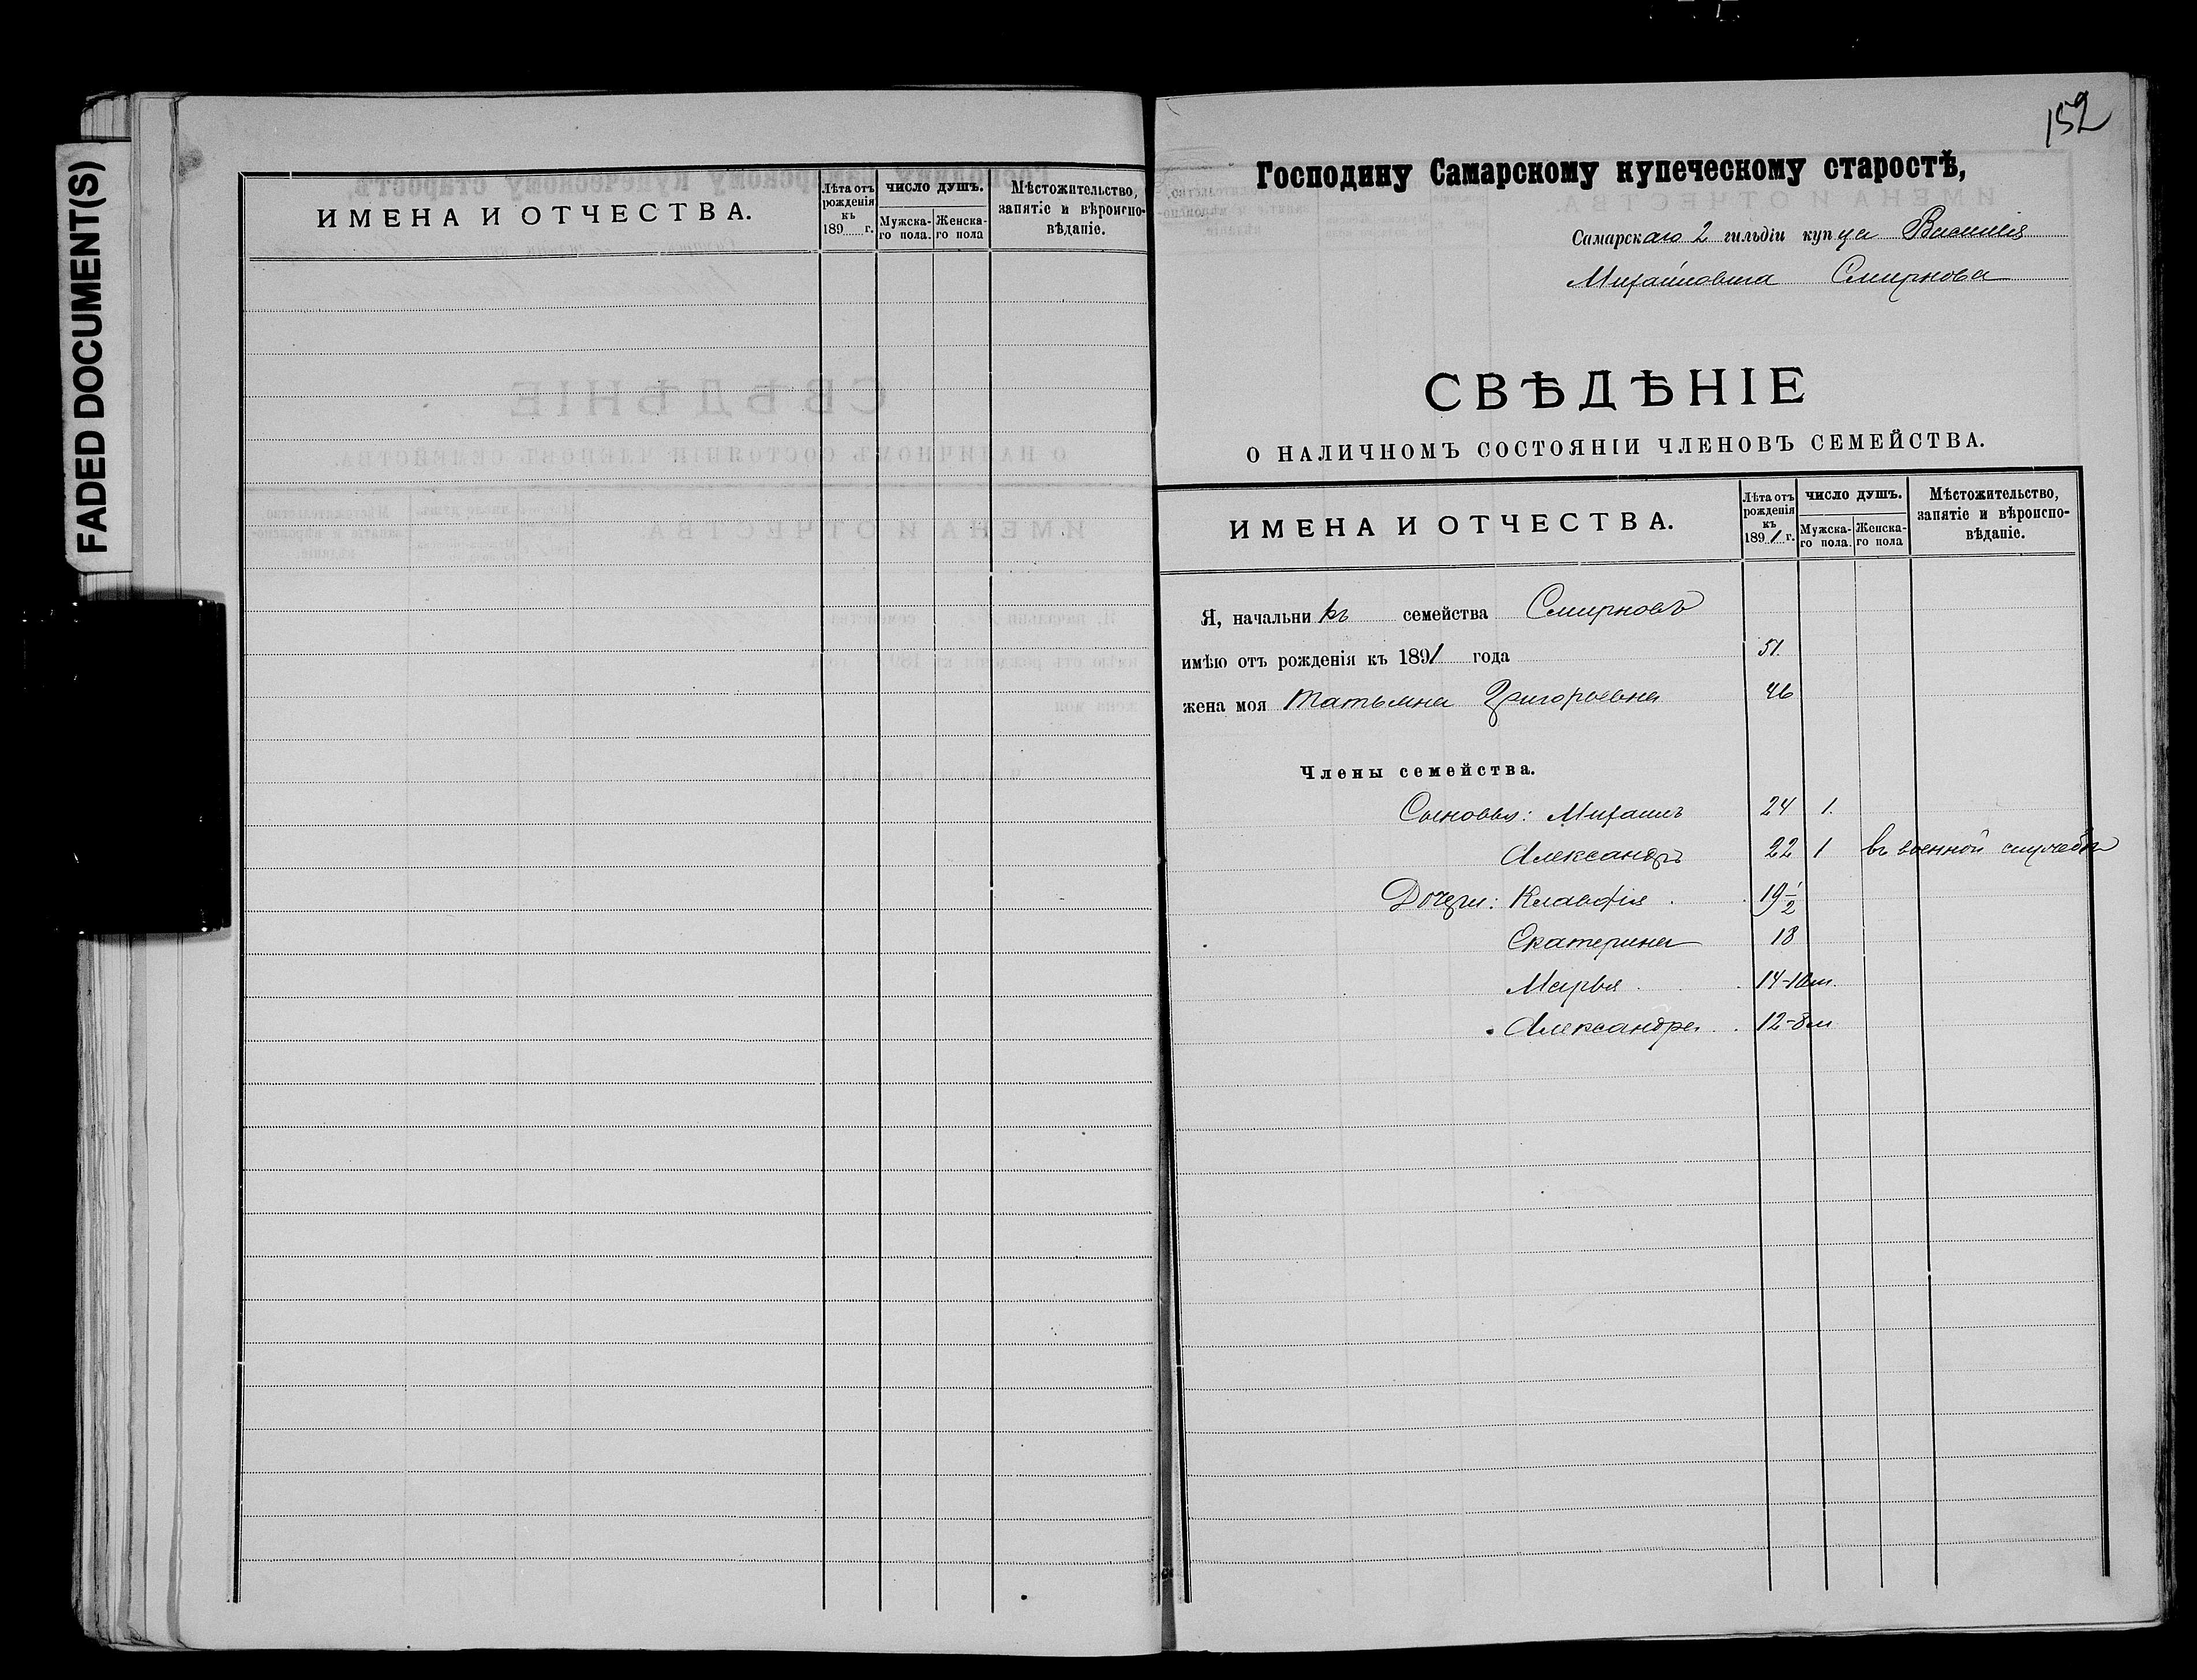 FADED DOCUMENT(S)
ИМЕНА И ОТЧЕСТВА.
Лѣта отъ рожденія къ 189 г.
ЧИСЛО ДУШЪ.
Мужска-го пола.
Женска-го пола
Мѣстожительство, занятіе и вѣроиспо-вѣданіе.
152
Господину Самарскому купеческому старостѣ,
Самарскаго 2 гильдіи купца Василія
Михайловича Смирнова
СВѢДѢНІЕ
О НАЛИЧНОМЪ СОСТОЯНІИ ЧЛЕНОВЪ СЕМЕЙСТВА.
ИМЕНА И ОТЧЕСТВА.
Лѣта отъ рожденія къ 1891 г.
ЧИСЛО ДУШЪ.
Мужска-го пола.
Женска-го пола
Мѣстожительство, занятіе и вѣроиспо-вѣданіе.
Я, начальникъ семейства Смирновъ
имѣю отъ рожденія къ 1891 года 51.
жена моя Татьяна Григорьевна 46
Члены семейства.
Сыновья: Михаилъ 24 1.
Александръ 22 1 въ военной службѣ
Дочери: Клавдія 19 1/2
Екатерина 18
Марья 14-10м.
Александра 12-8м